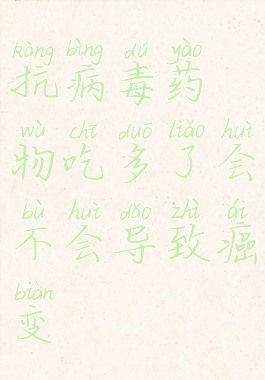 kàng bìng dú yào
抗病毒药
wù chī duō liǎo huì
物吃多了会
bù huì dǎo zhì ái
不会导致癌
biàn
变